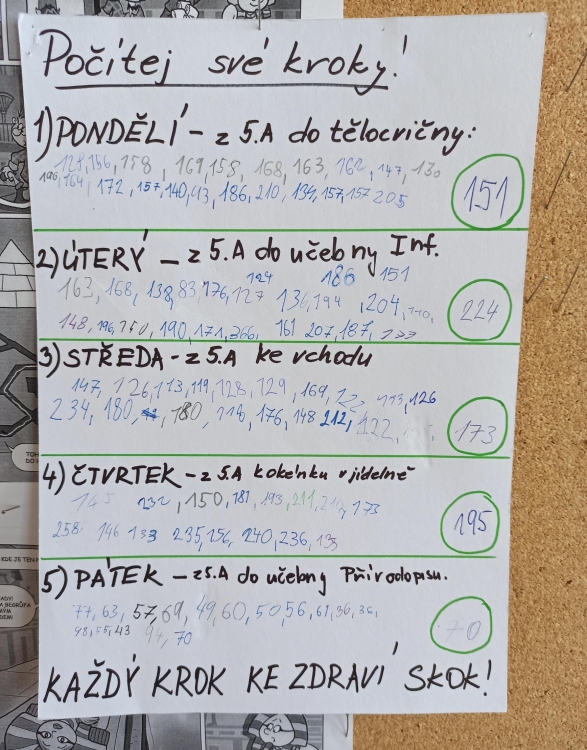 Počítej své kroky!
1) PONDĚLÍ - z 5.A do tělocvičny:
158, 169, 158, 168, 163, 162, 147, 130
172, 157, 140, 186, 210, 134, 157, 157 205
151
2) ÚTERÝ - z 5.A do učebny Inf.
124 186 151
163, 168, 138, 83, 176, 127 136, 194 , 204,
148, 196, 150, 190, 171, 366, 161 207, 187,
224
3) STŘEDA - z 5.A ke vchodu
147, 126, 113, 119, 128, 129, 169, 113, 126
234, 180, 180, 118, 176, 148 212, 122,
173
4) ČTVRTEK - z 5.A k okénku v jídelně
145 132, 150, 181, 193, 211, 173
258 146 133 235, 156, 240, 236, 135
195
5) PÁTEK - z 5.A do učebny Přírodopisu.
77, 63, 57, 69, 49, 60, 50, 56, 61, 36, 36,
98, 55, 43 94, 70
70
KAŽDÝ KROK KE ZDRAVÍ SKOK!